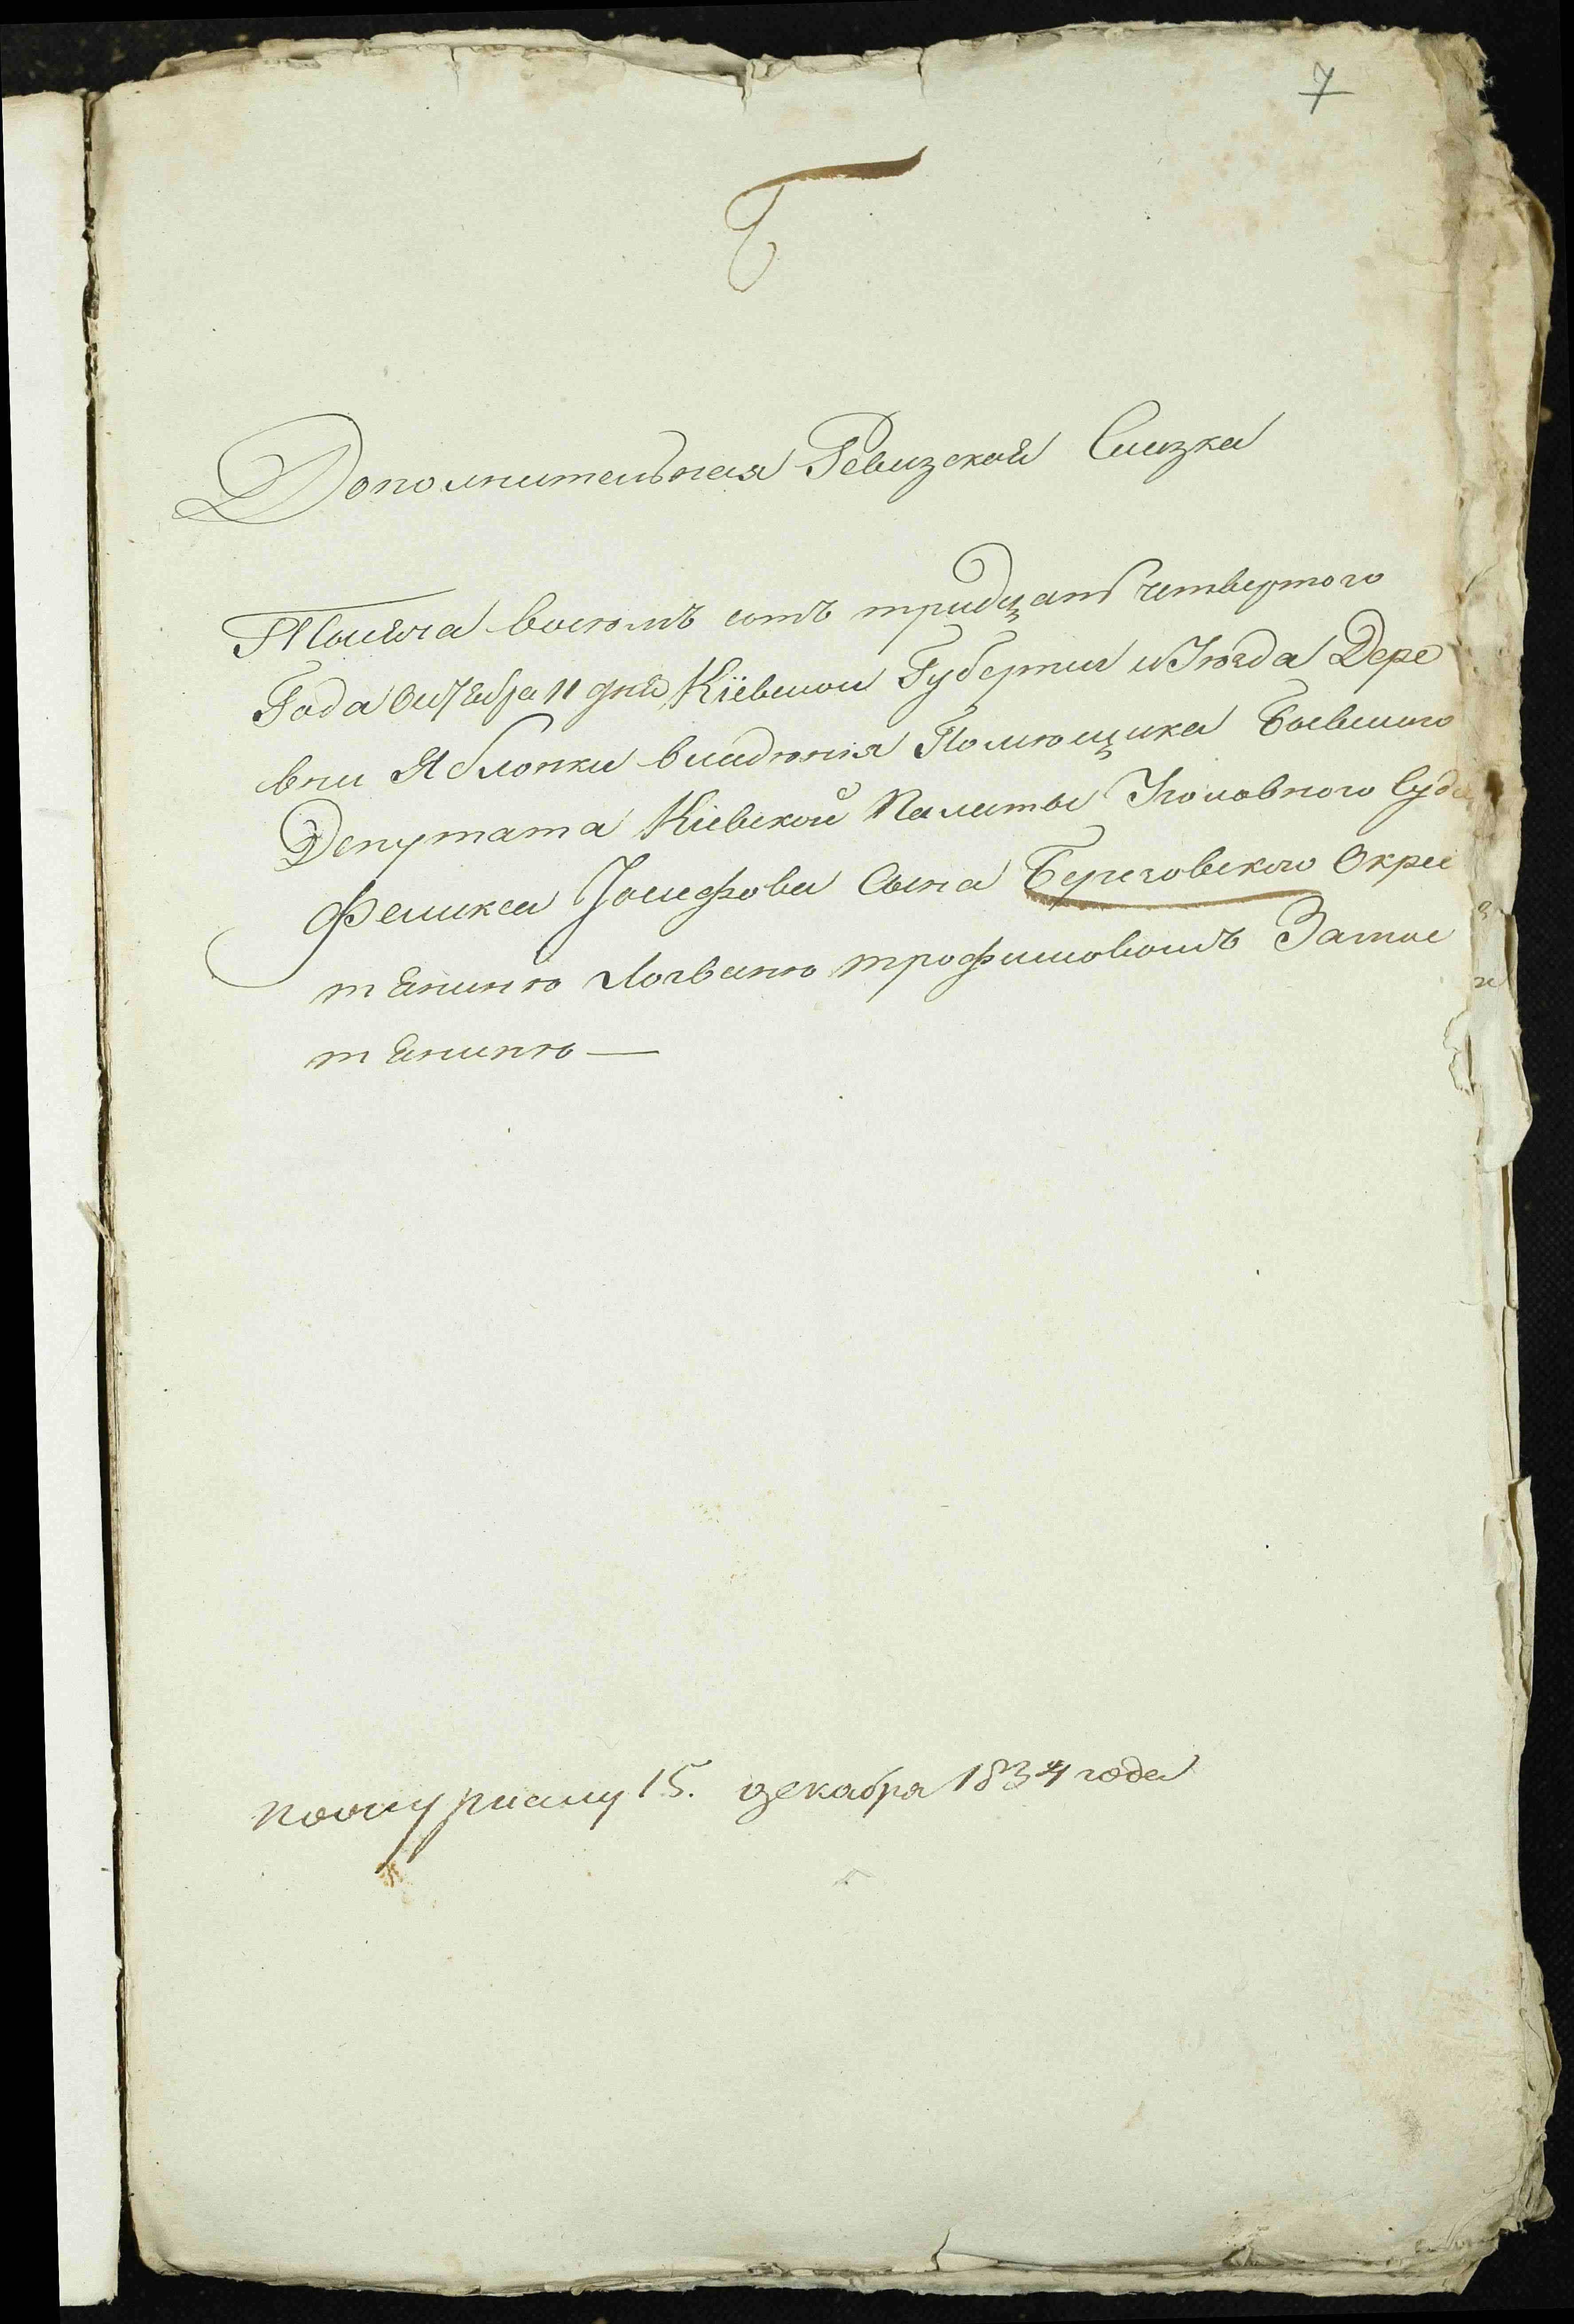 7
Б
Дополнительная Ревизской Сказка
Тысяча восемъ сотъ тридцать четвертого
Года Октября 11 дня Кіевской Губерніи и Уезда Дере
вни Яблонки владенія Помещика Бывшого
Депутата Кіевской Палаты Уголовного Суда
Феликса Іосифова Сына Береговского Окрес
тянине Логвине трофимовомъ Запис
тянине —
По журналу 15. декабря 1834 года